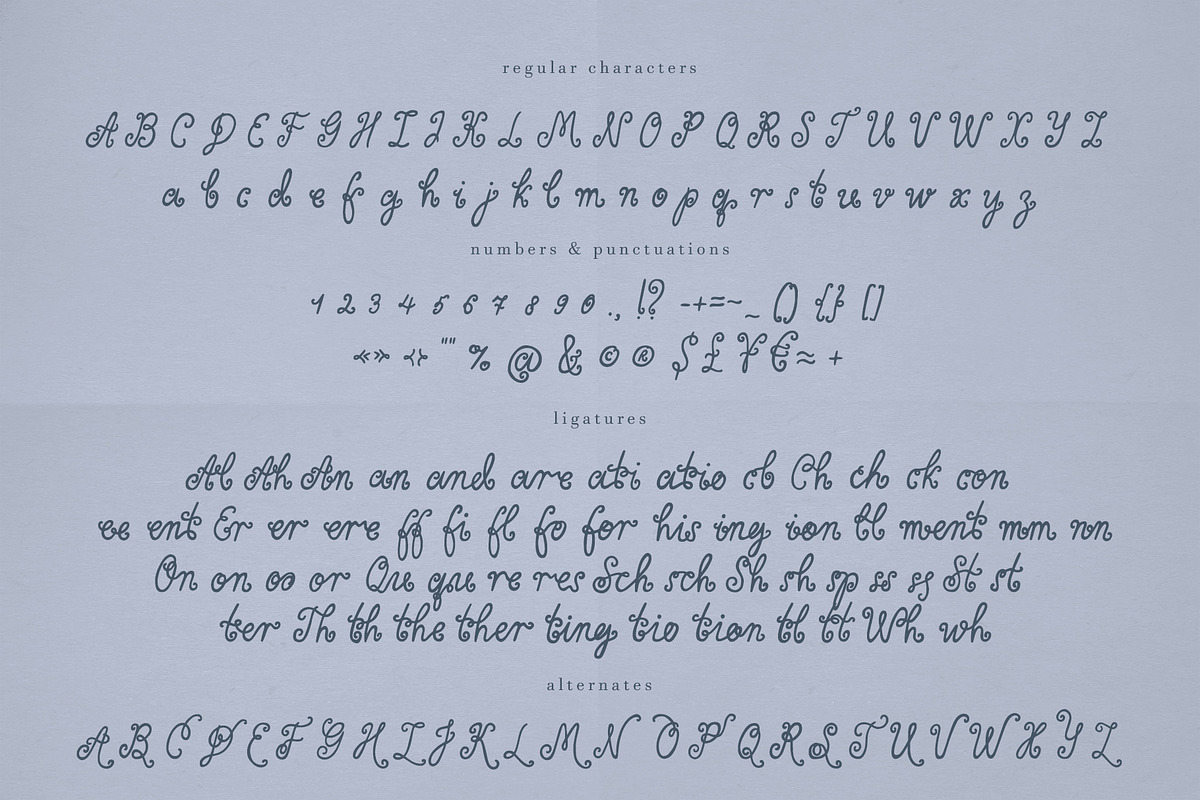 regular characters
A B C D E F G H I J K L M N O P Q R S T U V W X Y Z
a b c d e f g h i j k l m n o p q r s t u v w x y z
numbers & punctuations
1 2 3 4 5 6 7 8 9 0 ., !? -+=~_ () {} []
«» ‹› "" % @ & © ® $ £ ¥ € ≈ +
ligatures
Al Ah An an and are ati atio cl Ch ch ck con
ee ent Er er ere ff fi fl fo for his ing ion ll ment mm nn
On on oo or Qu qu re res Sch sch Sh sh sp ss ss St st
ter Th th the ther ting tio tion tl tt Wh wh
alternates
A B C D E F G H I J K L M N O P Q R S T U V W X Y Z